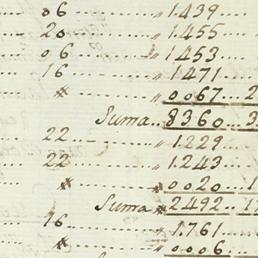 06 1439
20 1455
06 1453
16 1471
0067 2
Suma 8360 3
22 1229
22 1243
0020 1
Suma 2492 1
16 1761
0006